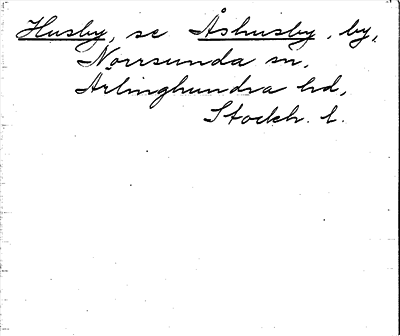 Husby, se Åshusby, by,
Norrsunda sn,
Ärlinghundra hd,
Stockh. l.